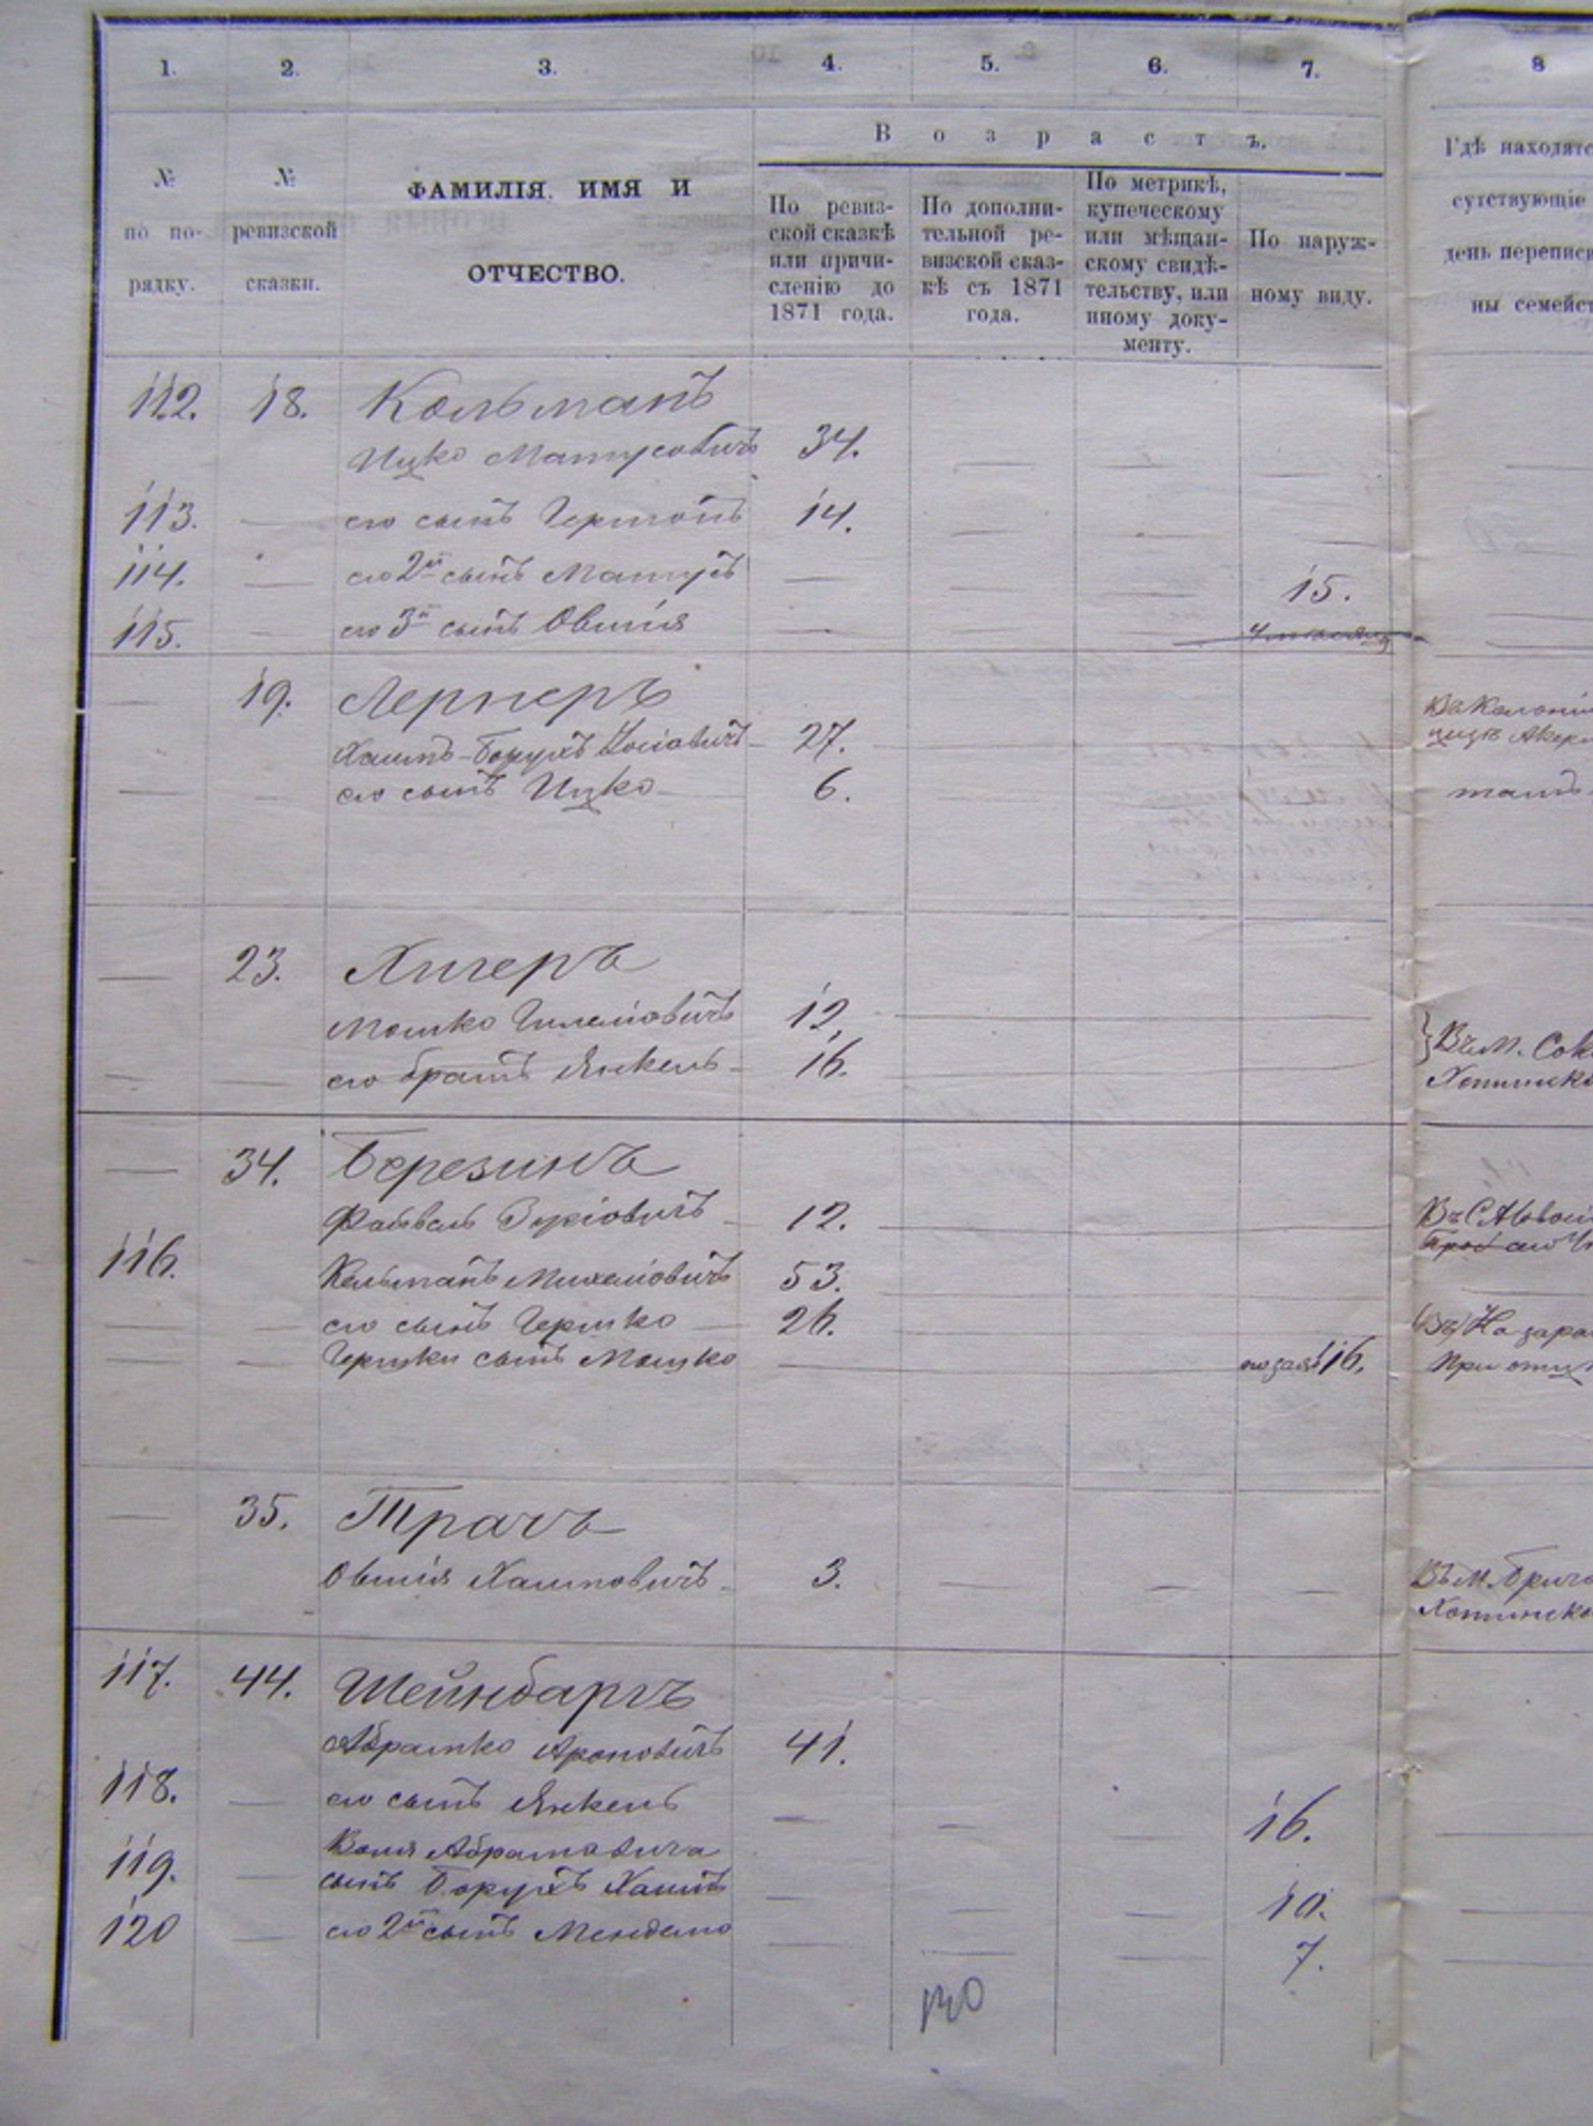 1. 2. 3. 4. 5. 6. 7. 8
В о з р а с т ъ.
№ по по-рядку.
№ ревизской сказки.
ФАМИЛІЯ. ИМЯ И
ОТЧЕСТВО.
По ревиз-
ской сказкѣ
или причи-
сленію до
1871 года.
По дополни-
тельной ре-
визской сказ-
кѣ съ 1871
года.
По метрикѣ,
купеческому
или мѣщан-
скому свидѣ-
тельству, или
иному доку-
менту.
По наруж-
ному виду.
Гдѣ находятс
сутствующіе
день переписи
ны семейст
112. 18. Кольманъ
Ицко Матусовичъ 34.
113. — его сынъ Гершонъ 14. — — —
114. — его 2й сынъ Матусъ — — — 15.
115. — его 3й сынъ Овшія — — —
— 19. Лернеръ
Хаимъ-Борухъ Іосіовичъ 27. Въ Колоніи
— — его сынъ Ицко 6. тамъ
— 23. Хигеръ
Мошко Шлеміовичъ 12. } Въ м. Сок
— — его братъ Янкель 16. Хотинско
— 34. Березинъ
Файвель Зусіовичъ 12.
116. Кельманъ Михеліовичъ 53.
— — его сынъ Гершко 26.
— — Гершки сынъ Мошко 16. При отцѣ
— 35. Трачъ
Овшія Хаимовичъ 3. — — — Въ м. Брич
Хотинско
117. 44. Шейнбаргъ
Абрамко Ароновичъ 41.
118. — его сынъ Янкель — — — 16. —
Абрамовича
119. — сынъ Борухъ Хаимъ — — — 10. —
120 — его 2й сынъ Менделю — — — 7. —